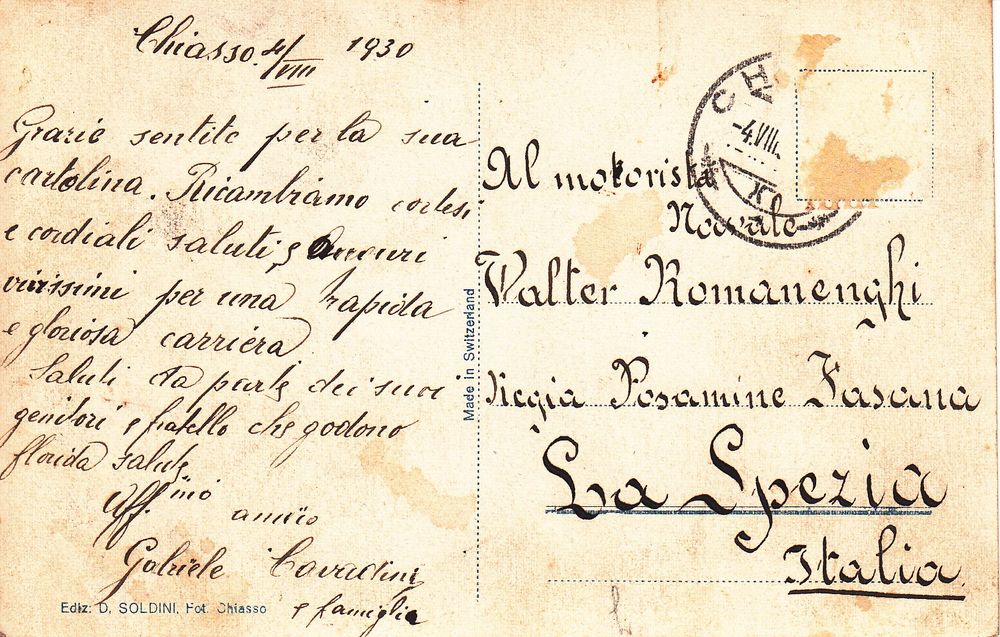 Chiasso. 4/VIII 1930
Grazie sentite per la sua
cartolina. Ricambiamo cortesi
e cordiali saluti e auguri
vivissimi per una rapida
e gloriosa carriera
Saluti da parte dei suoi
genitori e fratello che godono
florida salute
Aff.mo
amico
Gabriele Cavadini
e famiglia
Ediz: D. SOLDINI, Fot. Chiasso
Made in Switzerland
CH
-4.VIII.
Al motorista
Navale
Walter Romanenghi
Regia Posamine Fasana
La Spezia
Italia